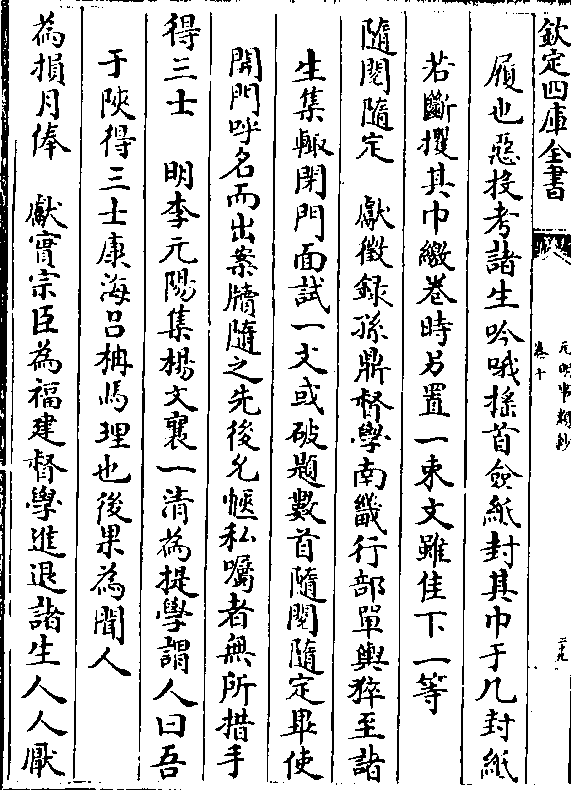 欽定四庫全書
元明事類鈔
卷十
二十九
履也惡投考諸生吟哦搖首僉紙封其巾于几封紙
若斷攫其巾繳卷時另置一束文雖佳下一等
隨閱隨定　獻徵録孫鼎督學南畿行部單輿猝至諸
生集輒閉門面試一文或破題數首隨閱隨定畢使
開門呼名而出案牘隨之先後允愜私囑者無所措手
得三士　明李元陽集楊文襄一清為提學謂人曰吾
于陜得三士康海吕柟馬理也後果為聞人
為損月俸　獻實宗臣為福建督學進退諸生人人厭